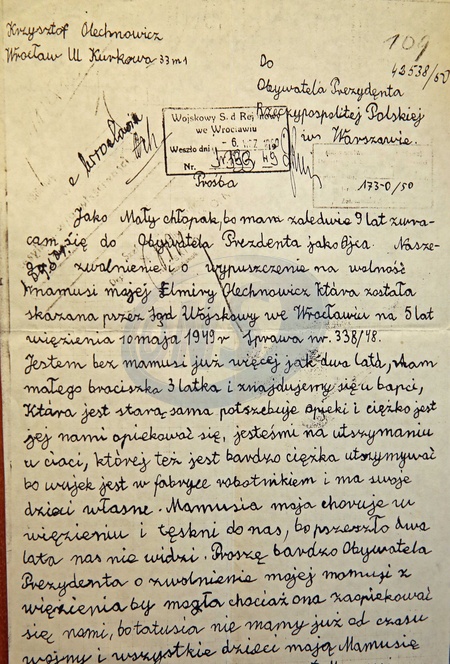 Krzysztof Olechnowicz
Wrocław Ul Kurkowa 33 m 1
109
42538/50
Do
Obywatela Prezydenta
Rzeczypospolitej Polskiej
w Warszawie.
Wojskowy S. d Rejonowy
we Wrocławiu
Weszło dni - 6.
Nr.
1730/50
Prośba
Jako Mały chłopak, bo mam zaledwie 9 lat zwra-
cam się do Obywatela Prezdenta jako Ojca Nasze-
go zwolnienie i o wypuszczenie na wolność
mamusi mojej Elmiry Olechnowicz Która została
skazana przez Sąd Wojskowy we Wrocławiu na 5 lat
więzienia 10 maja 1949 r Sprawa nr. 338/48.
Jestem bez mamusi już więcej jak dwa lata, mam
małego braciszka 3 latka i znajdujemy się u babci,
Która jest stara sama potrzebuje opieki i ciężko jest
jej nami opiekować się, jesteśmi na utrzymaniu
u cioci, której też jest bardzo ciężka utrzymywać
bo wujek jest w fabryce robotnikiem i ma swoje
dzieci własne. Mamusia moja choruje w
więzieniu i tęskni do nas, bo przeszło dwa
lata nas nie widzi. Proszę bardzo Obywatela
Prezydenta o zwolnienie mojej mamusi z
więzienia by mogła chociaż ona zaopiekować
się nami, bo tatusia nie mamy już od czasu
wojny i wszystkie dzieci mają Mamusię